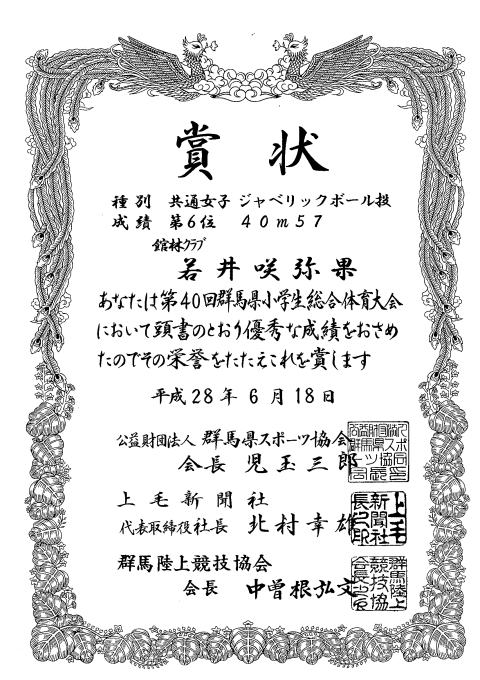 賞状
種別 共通女子 ジャベリックボール投
成績 第6位 40m57
館林クラブ
若井咲弥果
あなたは第40回群馬県小学生総合体育大会
において頭書のとおり優秀な成績をおさめ
たのでその栄誉をたたえこれを賞します
平成28年6月18日
公益財団法人 群馬県スポーツ協会
会長 児玉三郎
上毛新聞社
代表取締役社長 北村幸雄
群馬陸上競技協会
会長 中曽根弘文